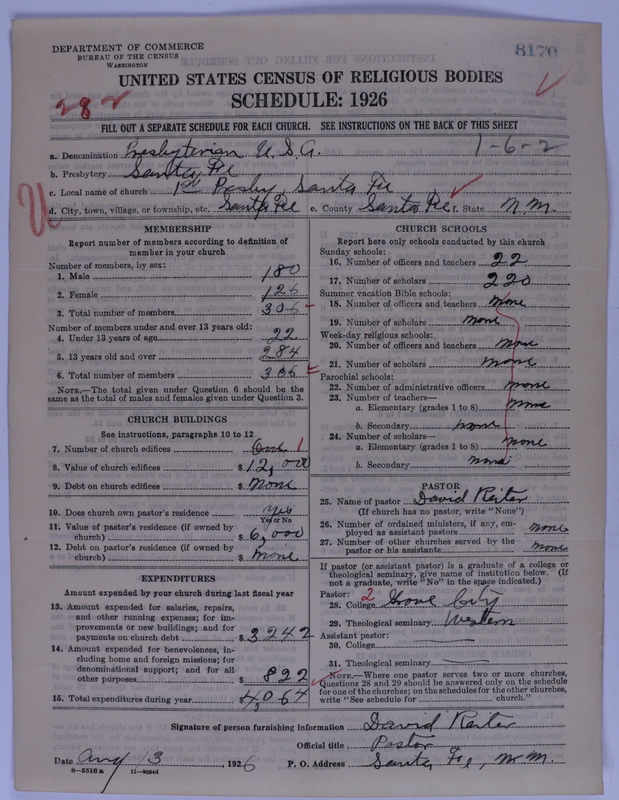 DEPARTMENT OF COMMERCE
BUREAU OF THE CENSUS
WASHINGTON
8170
UNITED STATES CENSUS OF RELIGIOUS BODIES
282
SCHEDULE: 1926
FILL OUT A SEPARATE SCHEDULE FOR EACH CHURCH. SEE INSTRUCTIONS ON THE BACK OF THIS SHEET
a. Denomination Presbyterian U.S.A. 1-6-2
b. Presbytery Santa Fe
c. Local name of church 1st Presby, Santa Fe
d. City, town, village, or township, etc. Santa Fe e. County Santa Fe f. State N.M.
U
MEMBERSHIP
Report number of members according to definition of
member in your church
Number of members, by sex:
1. Male 180
2. Female 126
3. Total number of members 306
Number of members under and over 13 years old:
4. Under 13 years of age 22
5. 13 years old and over 284
6. Total number of members 306
NOTE.—The total given under Question 6 should be the
same as the total of males and females given under Question 3.
CHURCH BUILDINGS
See instructions, paragraphs 10 to 12
7. Number of church edifices One 1
8. Value of church edifices $ 12,000
9. Debt on church edifices $ None
10. Does church own pastor's residence yes
Yes or No
11. Value of pastor's residence (if owned by
church) $ 6,000
12. Debt on pastor's residence (if owned by
church) $ None
EXPENDITURES
Amount expended by your church during last fiscal year
13. Amount expended for salaries, repairs,
and other running expenses; for im-
provements or new buildings; and for
payments on church debt $ 3242
14. Amount expended for benevolences, in-
cluding home and foreign missions; for
denominational support; and for all
other purposes $ 822
15. Total expenditures during year $ 4,064
CHURCH SCHOOLS
Report here only schools conducted by this church
Sunday schools:
16. Number of officers and teachers 22
17. Number of scholars 220
Summer vacation Bible schools:
18. Number of officers and teachers none
19. Number of scholars none
Week-day religious schools:
20. Number of officers and teachers none
21. Number of scholars none
Parochial schools:
22. Number of administrative officers none
23. Number of teachers—
a. Elementary (grades 1 to 8) none
b. Secondary none
24. Number of scholars—
a. Elementary (grades 1 to 8) none
b. Secondary none
PASTOR
25. Name of pastor David Reiter
(If church has no pastor, write "None")
26. Number of ordained ministers, if any, em-
ployed as assistant pastors none
27. Number of other churches served by the
pastor or his assistants none
If pastor (or assistant pastor) is a graduate of a college or
theological seminary, give name of institution below. (If
not a graduate, write "No" in the space indicated.)
Pastor: 2
28. College Grove City
29. Theological seminary Western
Assistant pastor:
30. College
31. Theological seminary
NOTE.—Where one pastor serves two or more churches,
Questions 28 and 29 should be answered only on the schedule
for one of the churches; on the schedules for the other churches,
write "See schedule for church."
Signature of person furnishing information David Reiter
Official title Pastor
Date Aug 13, 1926 P. O. Address Santa Fe, N.M.
8—5518 a